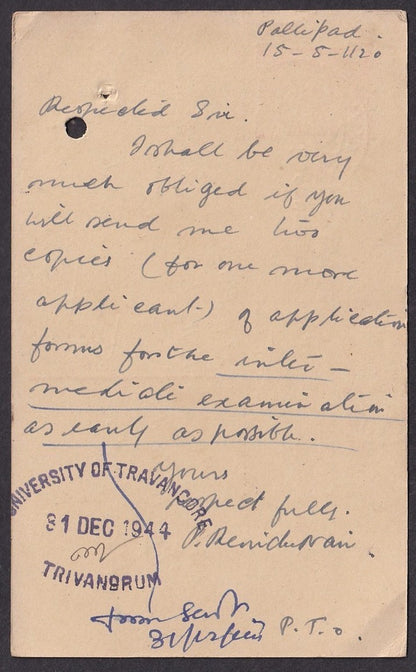 Pallipad.
15-5-1120
Respected Sir.
I shall be very
much obliged if you
will send me two
copies (for one more
applicant) of application
forms for the inter-
mediate examination
as early as possible.
Yours
respectfully.
P.
UNIVERSITY OF TRAVANCORE
31 DEC 1944
TRIVANDRUM
Form Sent
P. T. o.